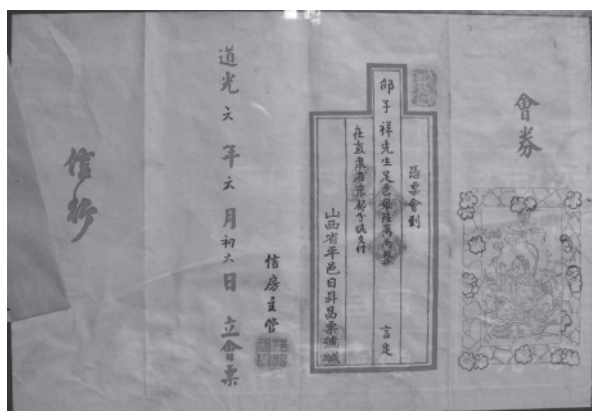 會券
憑票會到
邰子祥先生足色銀陸萬兩整 言定
在直隶省京都分號支付
山西省平邑日昇昌票號緘
信房主管
道光六年六月初六日立會票
信行